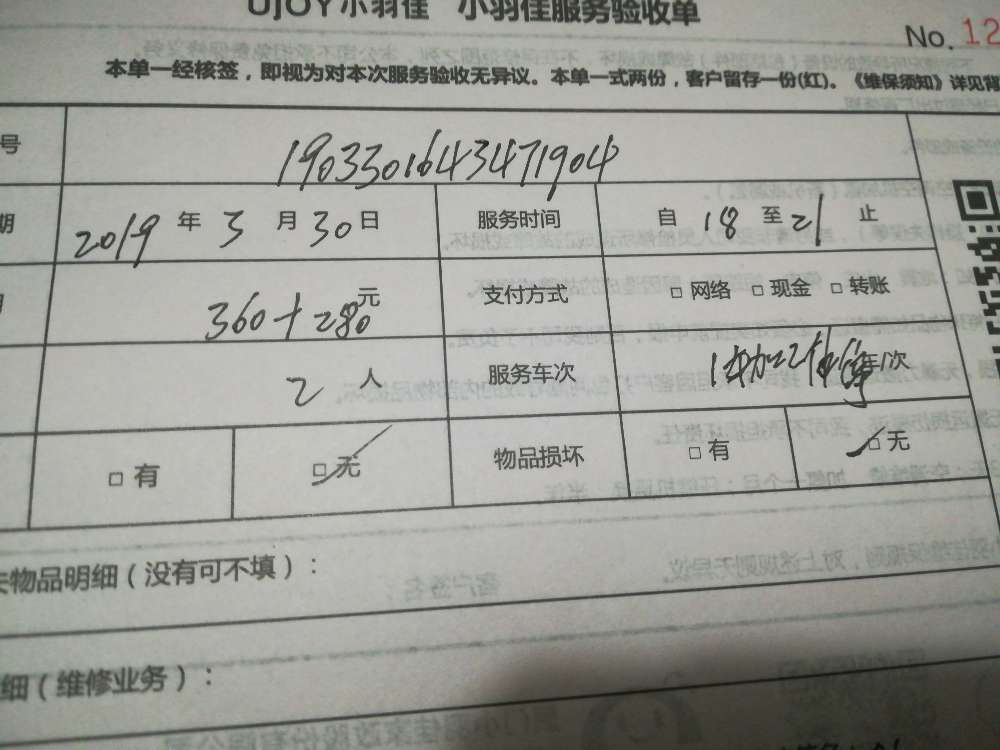 UJOY小羽佳 小羽佳服务验收单
No. 12
本单一经核签，即视为对本次服务验收无异议。本单一式两份，客户留存一份(红)。《维保须知》详见背
号 1903301643471904
期 2019 年 3 月 30 日 服务时间 自 18 至 21 止
360+280 元 支付方式 □ 网络 □ 现金 □ 转账
2 人 服务车次 车/次
□ 有 □ 无 物品损坏 □ 有 □ 无
失物品明细（没有可不填）：
细（维修业务）：